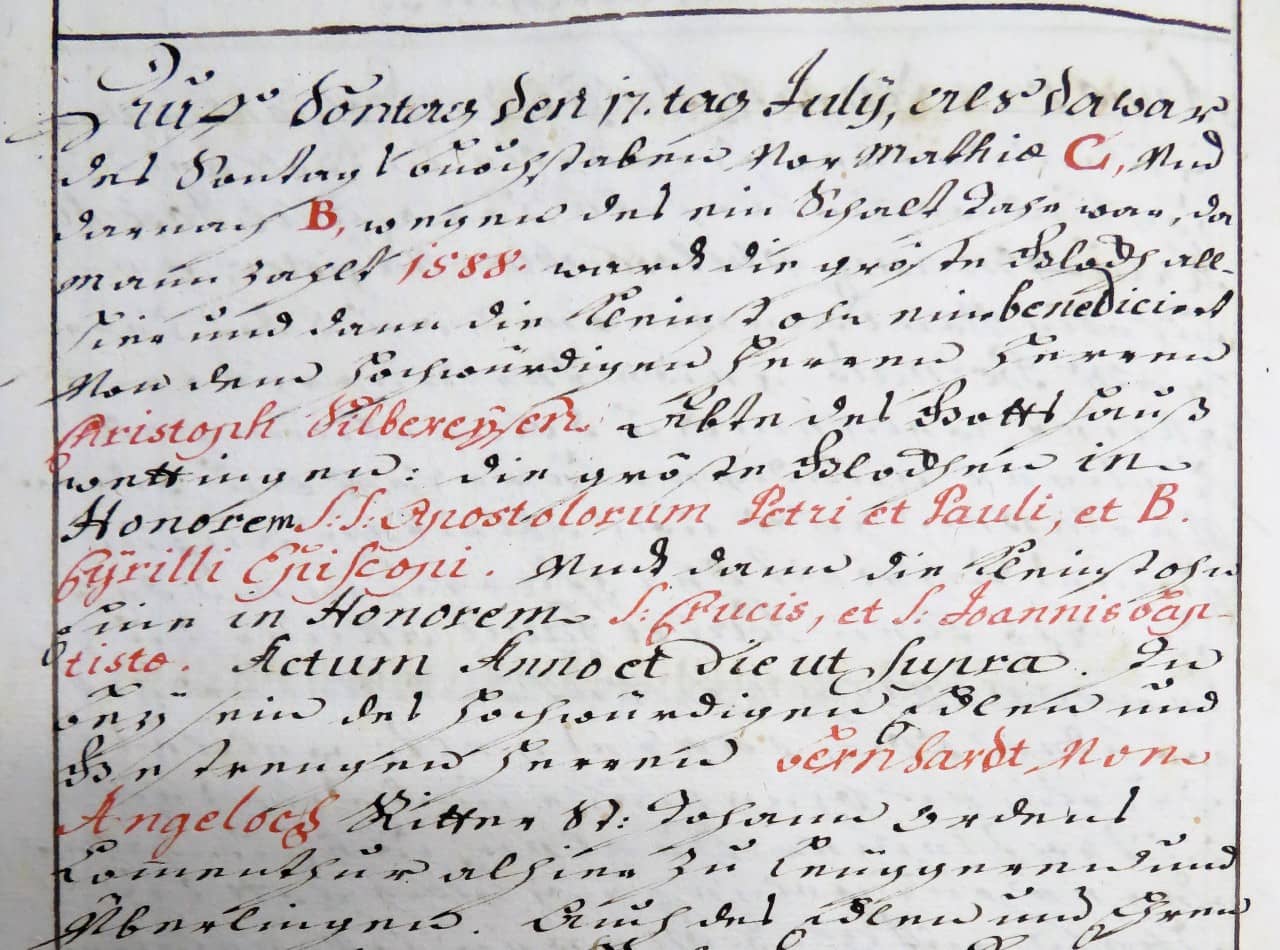 Auff Sontag den 17. tag Julÿ, als da war
des Sontags buͦchstaben Vor Mathiæ C, Vnd
darnach B, wegen des ein Schalt Jahr war, da
mann zahlt 1588. ward die gröste Glockh all-
hier und dann die kleinst ohn eine benediciert
Von dem hochwürdigen Herren Herren
Christoph Silbereysen Abte des Gottshauß
wettingen: die gröste Glockhen in
Honorem S: S: Apostolorum Petri et Pauli, et B.
Cÿrilli Episcopi. Vnd dann die kleinst ohn
Eine in Honorem S: Crucis, et S: Joannis bap-
tistæ. Actum Anno et Die ut Supra. In
beÿ sein des hochwürdigen Edlen und
Gestrengen Herren bernhardt Von
Angeloch Ritter St: Johann Ordens
Comenthur alhier zu Leuggeren und
Überlingen. Auch des Edlen und Ehren